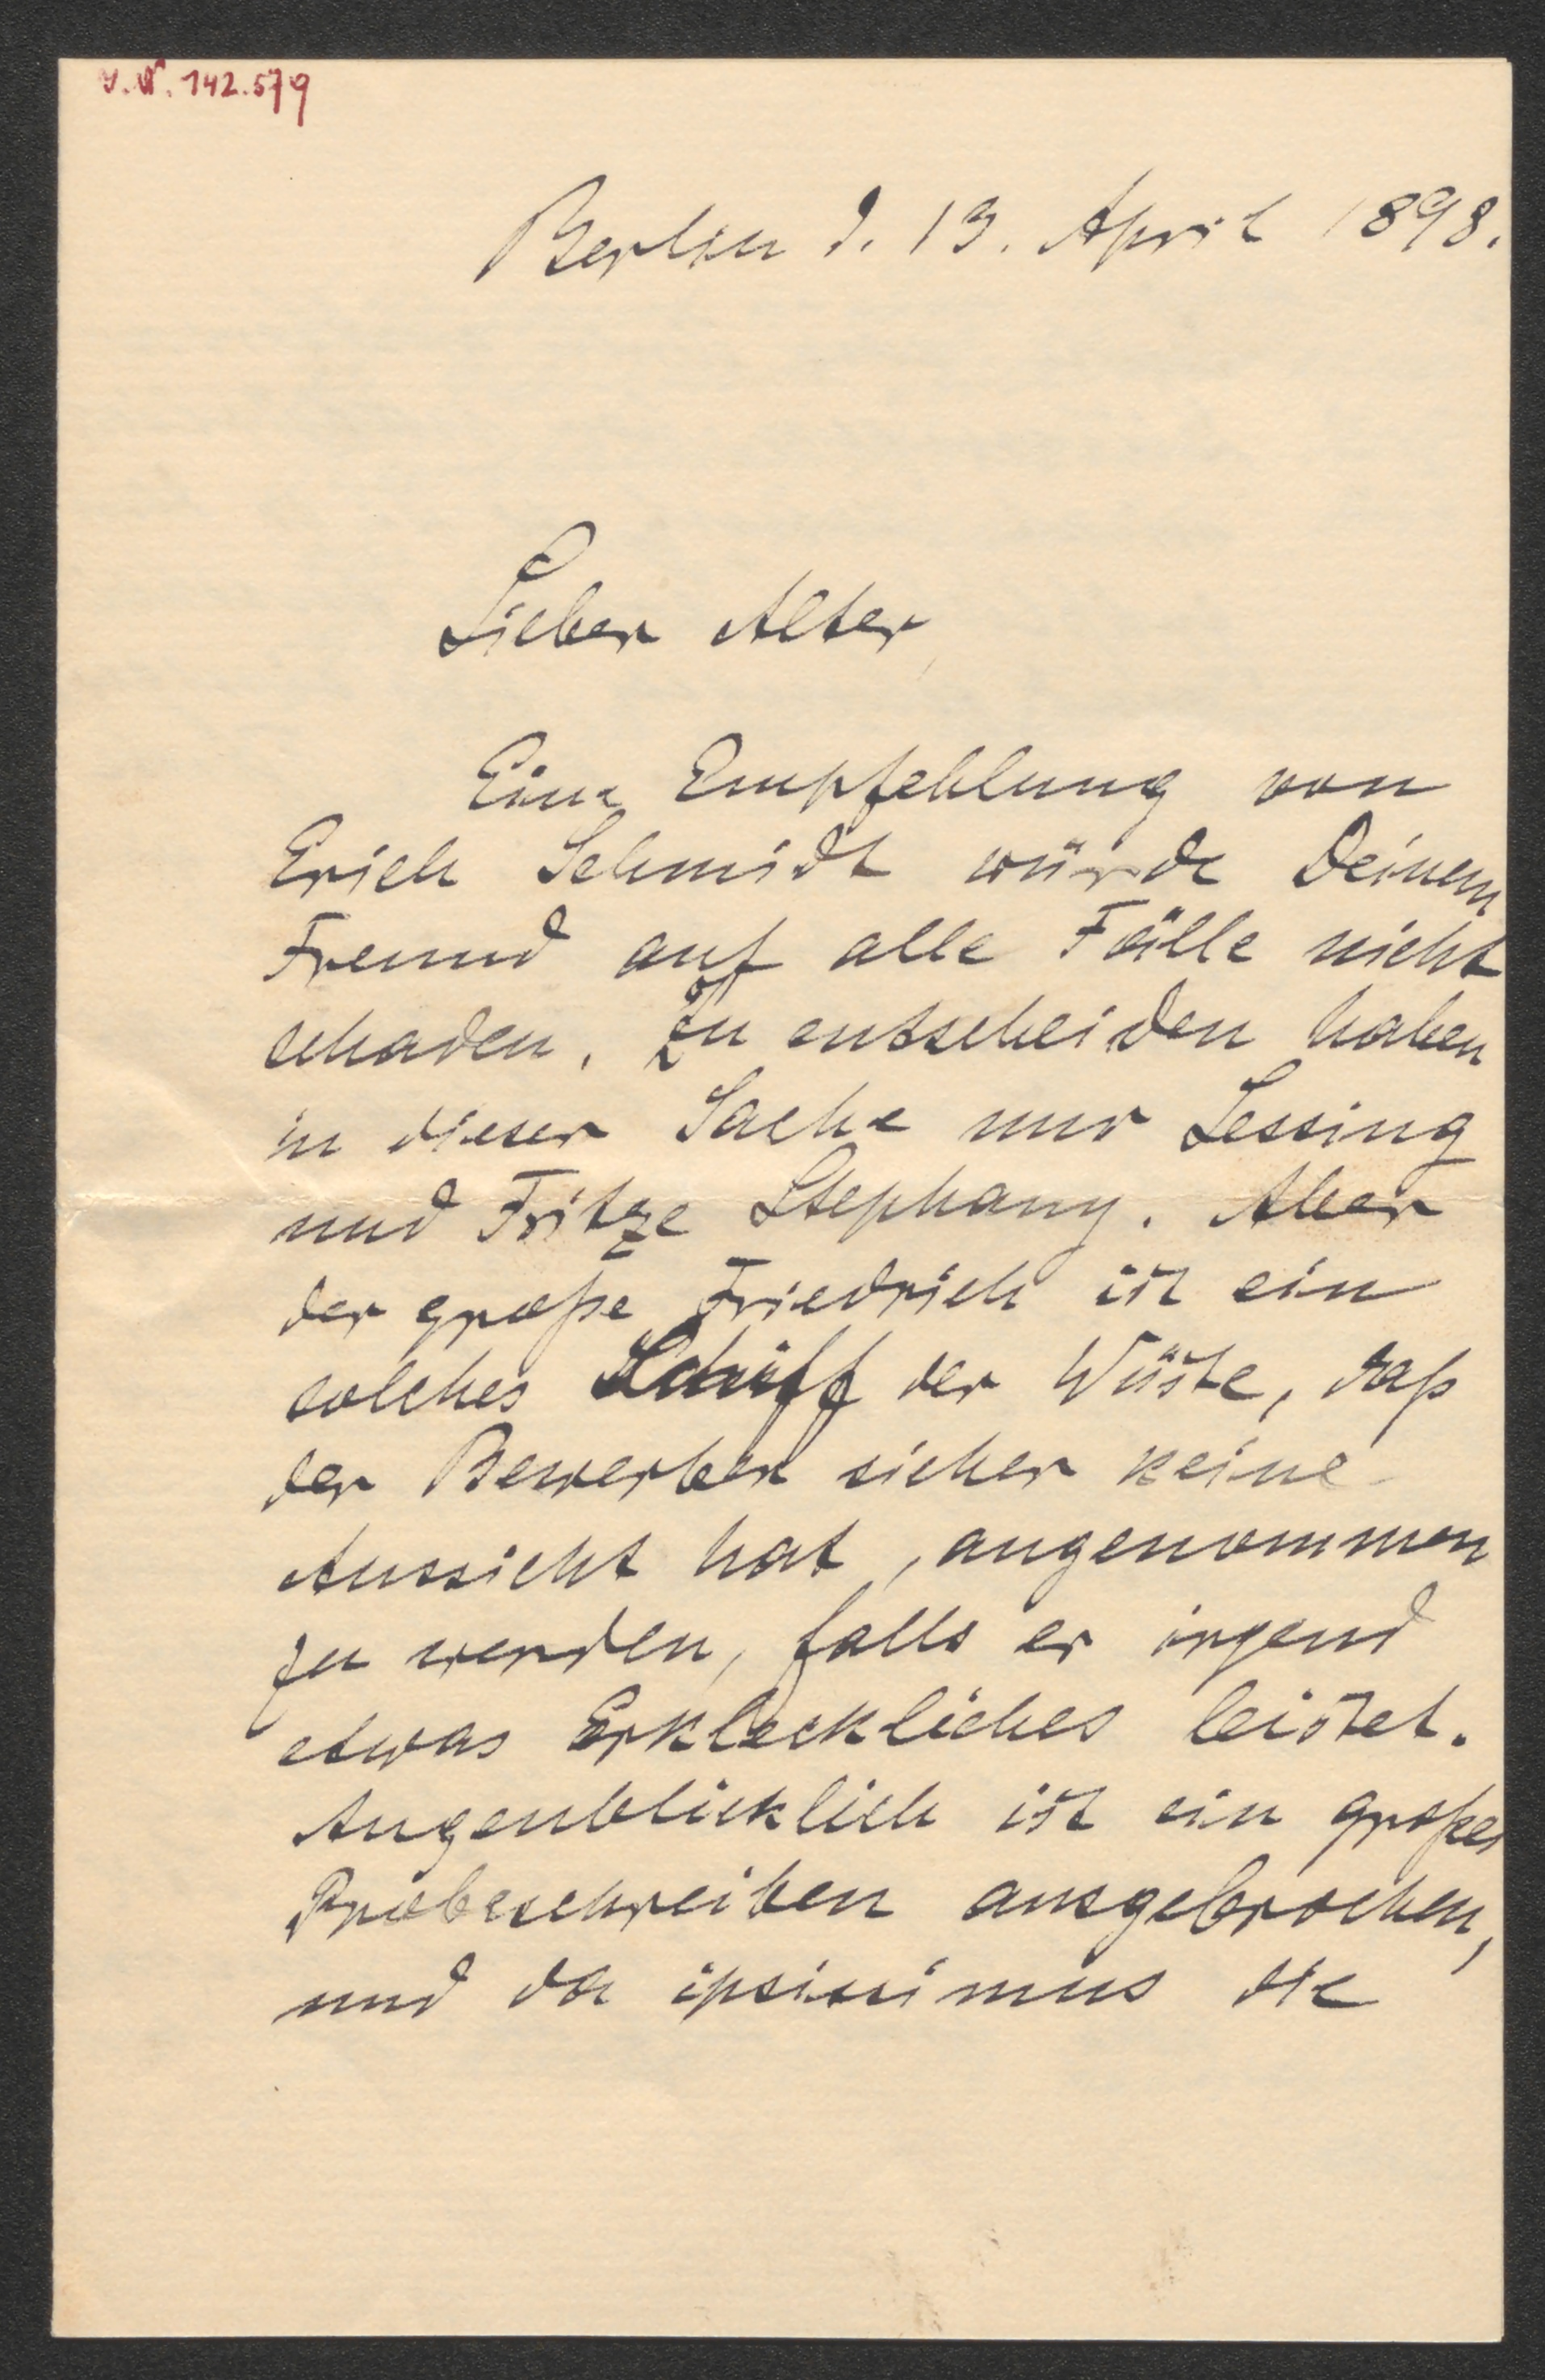 J.N. 142.579
Berlin d. 13. April 1898.
Lieber Alter,
Eine Empfehlung von
Erich Schmidt würde Deinem
Freund auf alle Fälle nicht
schaden. Zu entscheiden haben
in dieser Sache nur Lessing
und Fritze Stephany. Aber
der große Friedrich ist ein
solches Schiff der Wüste, daß
der Bewerber sicher keine
Aussicht hat, angenommen
zu werden, falls er irgend
etwas Erkleckliches leistet.
Augenblicklich ist ein großes
Probeschreiben ausgebrochen,
und da ipsissimus die